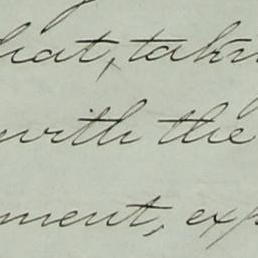 hat, takin
with the
ment, exp